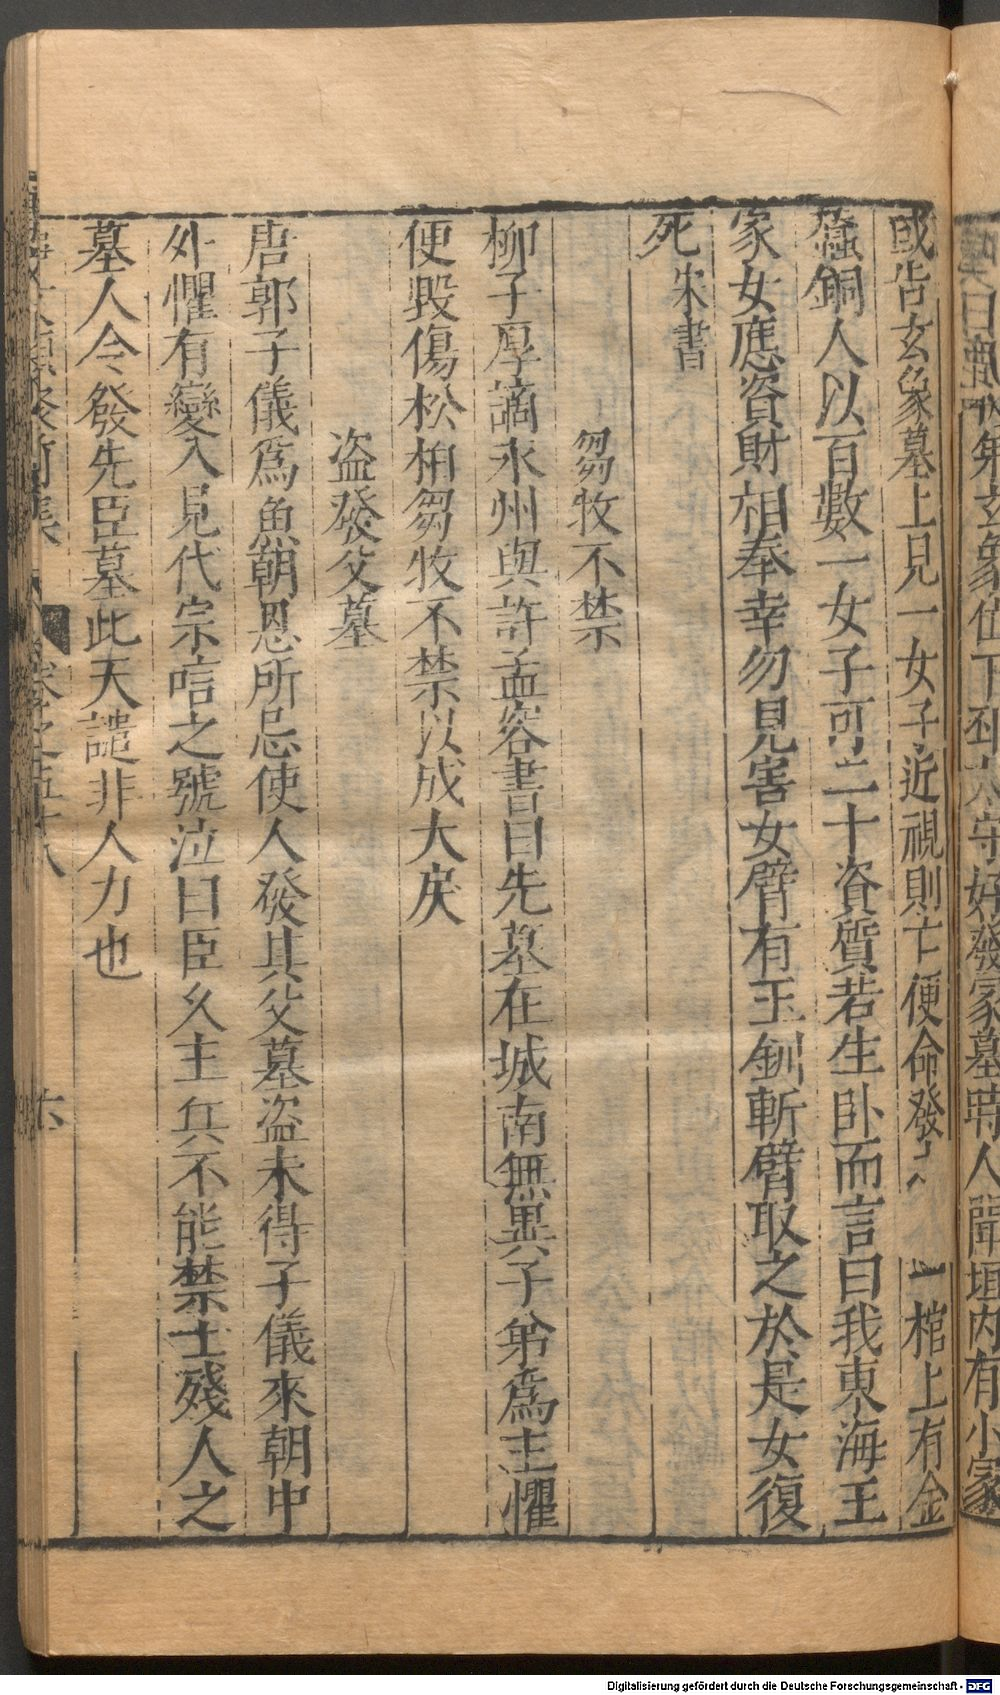 第玄象位下邳太守好發冢墓時人聞垣內有小冢
或告玄象墓上見一女子近視則亡便命發之 一棺上有金
蠶銅人以百數一女子可二十資質若生卧而言曰我東海王
家女應資財相奉幸勿見害女臂有玉釧斬臂取之於是女復
死宋書
芻牧不禁
柳子厚謫永州與許孟容書曰先墓在城南無異子弟為主懼
便毀傷松柏芻牧不禁以成大戾
盗發父墓
唐郭子儀為魚朝恩所忌使人發其父墓盗未得子儀來朝中
外懼有變入見代宗唁之號泣曰臣久主兵不能禁士殘人之
墓人令發先臣墓此天譴非人力也
前集 卷之五十八
六
Digitalisierung gefördert durch die Deutsche Forschungsgemeinschaft - DFG